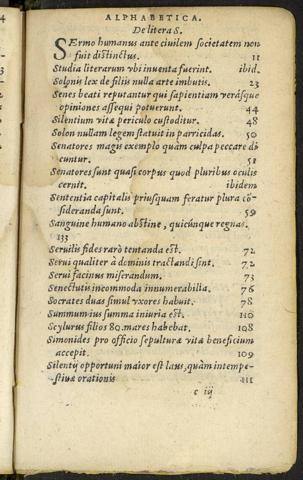 ALPHABETICA.
De litera S.
SErmo humanus ante ciuilem societatem non
fuit distinctus. 11
Studia literarum vbi inuenta fuerint. ibid.
Solonis lex de filiis nulla arte imbutis. 23
Senes beati reputantur qui sapientiam verásque
opiniones assequi potuerunt. 44
Silentium vitæ periculo custoditur. 48
Solon nullam legem statuit in parricidas. 50
Senatores magis exemplo quàm culpa peccare di
cuntur. 51
Senatores sunt quasi corpus quod pluribus oculis
cernit. ibidem
Sententia capitalis priusquam feratur plura cõ-
sideranda sunt. 59
Sanguine humano abstine, quicúnque regnas.
133
Seruilis fides rarò tentanda est. 72
Serui qualiter à dominis tractandi sint. 72
Serui facinus miserandum. 73
Senectutis incommoda innumerabilia. 76
Socrates duas simul vxores habuit. 78
Summum ius summa iniuria est. 110
Scylurus filios 80. mares habebat. 108
Simonides pro officio sepulturæ vitæ beneficium
accepit. 109
Silentij opportuni maior est laus, quàm intempe-
stiuæ orationis 111
c iij